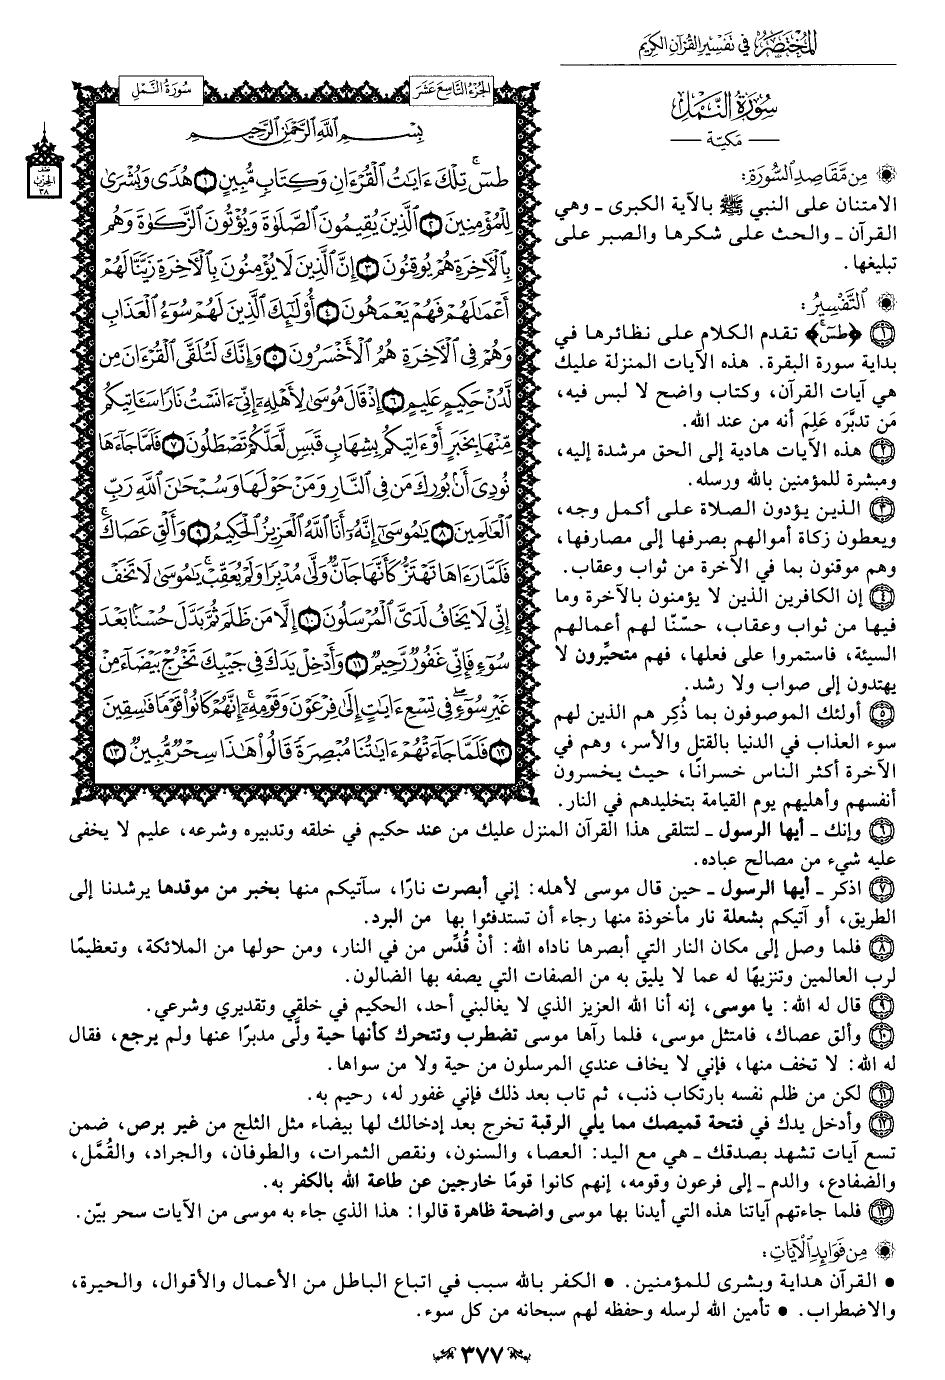 المختصر في تفسير القرآن الكريم
سورة النمل
الجزء التاسع عشر
سُورَةُ النَّمْلِ
— مكية —
بِسْمِ اللَّهِ الرَّحْمَٰنِ الرَّحِيمِ
طسٓ ۚ تِلْكَ ءَايَٰتُ الْقُرْءَانِ وَكِتَابٍ مُّبِينٍ ١ هُدًى وَبُشْرَىٰ
لِلْمُؤْمِنِينَ ٢ الَّذِينَ يُقِيمُونَ الصَّلَوٰةَ وَيُؤْتُونَ الزَّكَوٰةَ وَهُم
بِالْءَاخِرَةِ هُمْ يُوقِنُونَ ٣ إِنَّ الَّذِينَ لَا يُؤْمِنُونَ بِالْءَاخِرَةِ زَيَّنَّا لَهُمْ
أَعْمَٰلَهُمْ فَهُمْ يَعْمَهُونَ ٤ أُوْلَٰٓئِكَ الَّذِينَ لَهُمْ سُوٓءُ الْعَذَابِ
وَهُمْ فِي الْءَاخِرَةِ هُمُ الْأَخْسَرُونَ ٥ وَإِنَّكَ لَتُلَقَّى الْقُرْءَانَ مِن
لَّدُنْ حَكِيمٍ عَلِيمٍ ٦ إِذْ قَالَ مُوسَىٰ لِأَهْلِهِۦٓ إِنِّيٓ ءَانَسْتُ نَارًا سَـَٔاتِيكُم
مِّنْهَا بِخَبَرٍ أَوْ ءَاتِيكُم بِشِهَابٍ قَبَسٍ لَّعَلَّكُمْ تَصْطَلُونَ ٧ فَلَمَّا جَآءَهَا
نُودِيَ أَنۢ بُورِكَ مَن فِي النَّارِ وَمَنْ حَوْلَهَا وَسُبْحَٰنَ اللَّهِ رَبِّ
الْعَٰلَمِينَ ٨ يَٰمُوسَىٰٓ إِنَّهُۥٓ أَنَا اللَّهُ الْعَزِيزُ الْحَكِيمُ ٩ وَأَلْقِ عَصَاكَ ۚ
فَلَمَّا رَءَاهَا تَهْتَزُّ كَأَنَّهَا جَآنٌّ وَلَّىٰ مُدْبِرًا وَلَمْ يُعَقِّبْ ۚ يَٰمُوسَىٰ لَا تَخَفْ
إِنِّي لَا يَخَافُ لَدَيَّ الْمُرْسَلُونَ ١٠ إِلَّا مَن ظَلَمَ ثُمَّ بَدَّلَ حُسْنًۢا بَعْدَ
سُوٓءٍ فَإِنِّي غَفُورٌ رَّحِيمٌ ١١ وَأَدْخِلْ يَدَكَ فِي جَيْبِكَ تَخْرُجْ بَيْضَآءَ مِنْ
غَيْرِ سُوٓءٍ ۖ فِي تِسْعِ ءَايَٰتٍ إِلَىٰ فِرْعَوْنَ وَقَوْمِهِۦٓ ۚ إِنَّهُمْ كَانُوا۟ قَوْمًا فَٰسِقِينَ
١٢ فَلَمَّا جَآءَتْهُمْ ءَايَٰتُنَا مُبْصِرَةً قَالُوا۟ هَٰذَا سِحْرٌ مُّبِينٌ ١٣
نصف
الحزب
٣٨
من مقاصد السورة:
الامتنان على النبي ﷺ بالآية الكبرى ـ وهي
القرآن ـ والحث على شكرها والصبر على
تبليغها.
التفسير:
١ ﴿طسٓ﴾ تقدم الكلام على نظائرها في
بداية سورة البقرة. هذه الآيات المنزلة عليك
هي آيات القرآن، وكتاب واضح لا لبس فيه،
مَن تدبَّره عَلِمَ أنه من عند الله.
٢ هذه الآيات هادية إلى الحق مرشدة إليه،
ومبشرة للمؤمنين بالله ورسله.
٣ الذين يؤدون الصلاة على أكمل وجه،
ويعطون زكاة أموالهم بصرفها إلى مصارفها،
وهم موقنون بما في الآخرة من ثواب وعقاب.
٤ إن الكافرين الذين لا يؤمنون بالآخرة وما
فيها من ثواب وعقاب، حسّنّا لهم أعمالهم
السيئة، فاستمروا على فعلها، فهم متحيِّرون لا
يهتدون إلى صواب ولا رشد.
٥ أولئك الموصوفون بما ذُكِر هم الذين لهم
سوء العذاب في الدنيا بالقتل والأسر، وهم في
الآخرة أكثر الناس خسرانًا، حيث يخسرون
أنفسهم وأهليهم يوم القيامة بتخليدهم في النار.
٦ وإنك ـ أيها الرسول ـ لتتلقى هذا القرآن المنزل عليك من عند حكيم في خلقه وتدبيره وشرعه، عليم لا يخفى
عليه شيء من مصالح عباده.
٧ اذكر ـ أيها الرسول ـ حين قال موسى لأهله: إني أبصرت نارًا، سآتيكم منها بخبر من موقدها يرشدنا إلى
الطريق، أو آتيكم بشعلة نار مأخوذة منها رجاء أن تستدفئوا بها من البرد.
٨ فلما وصل إلى مكان النار التي أبصرها ناداه الله: أنْ قُدِّس من في النار، ومن حولها من الملائكة، وتعظيمًا
لرب العالمين وتنزيهًا له عما لا يليق به من الصفات التي يصفه بها الضالون.
٩ قال له الله: يا موسى، إنه أنا الله العزيز الذي لا يغالبني أحد، الحكيم في خلقي وتقديري وشرعي.
١٠ وألق عصاك، فامتثل موسى، فلما رآها موسى تضطرب وتتحرك كأنها حية ولَّى مدبرًا عنها ولم يرجع، فقال
له الله: لا تخف منها، فإني لا يخاف عندي المرسلون من حية ولا من سواها.
١١ لكن من ظلم نفسه بارتكاب ذنب، ثم تاب بعد ذلك فإني غفور له، رحيم به.
١٢ وأدخل يدك في فتحة قميصك مما يلي الرقبة تخرج بعد إدخالك لها بيضاء مثل الثلج من غير برص، ضمن
تسع آيات تشهد بصدقك ـ هي مع اليد: العصا، والسنون، ونقص الثمرات، والطوفان، والجراد، والقُمَّل،
والضفادع، والدم ـ إلى فرعون وقومه، إنهم كانوا قومًا خارجين عن طاعة الله بالكفر به.
١٣ فلما جاءتهم آياتنا هذه التي أيدنا بها موسى واضحة ظاهرة قالوا: هذا الذي جاء به موسى من الآيات سحر بيّن.
من فوائد الآيات:
• القرآن هداية وبشرى للمؤمنين. • الكفر بالله سبب في اتباع الباطل من الأعمال والأقوال، والحيرة،
والاضطراب. • تأمين الله لرسله وحفظه لهم سبحانه من كل سوء.
٣٧٧